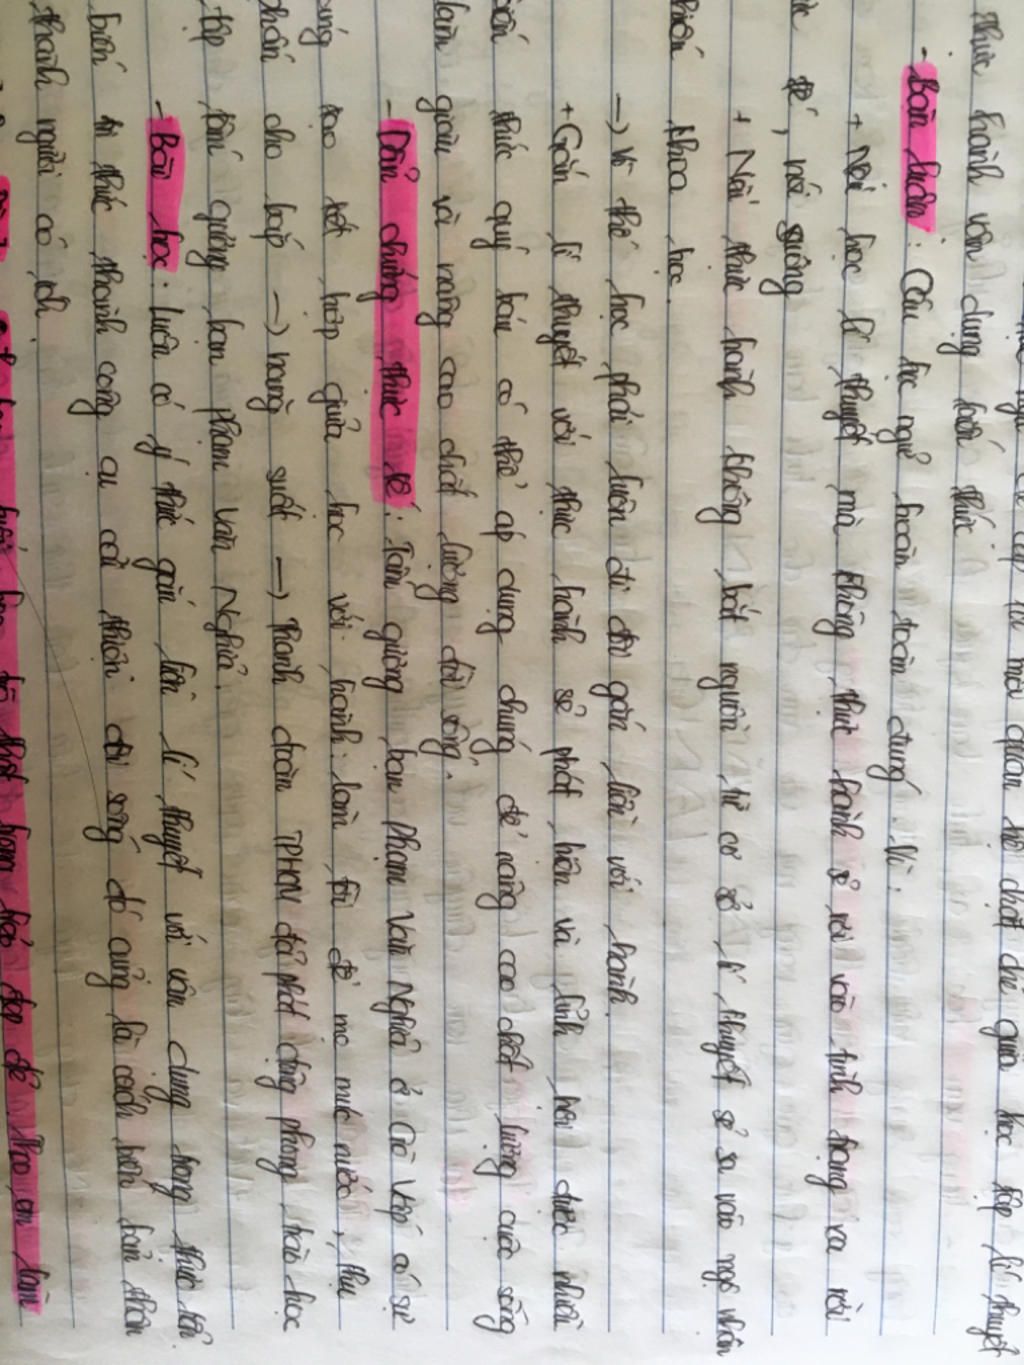 mối quan hệ chặt chẽ giữa học tập lí thuyết
thực hành vận dụng kiến thức.
- Bàn luận: Câu tục ngữ hoàn toàn đúng. Vì:
+ Nếu học lí thuyết mà không thực hành sẽ rơi vào tình trạng xa rời
thực tế, nói suông
+ Nếu thực hành không bắt nguồn từ cơ sở lí thuyết sẽ sa vào ngộ nhận
khoa học.
→ Vì thế học phải luôn đi đôi gắn liền với hành.
+ Gắn lí thuyết với thực hành sẽ phát hiện và lĩnh hội được nhiều
thức quý báu có thể áp dụng chúng để nâng cao chất lượng cuộc sống
làm giàu và nâng cao chất lượng đời sống.
- Dẫn chứng thực tế: Tấm gương bạn Phạm Văn Nghĩa ở Gò Vấp có sự
tạo kết hợp giữa học với hành: làm tời để mẹ múc nước, thụ
phấn cho bắp → năng suất → Thành đoàn TPHCM đã phát động phong trào học
tập tấm gương bạn Phạm Văn Nghĩa.
- Bài học: luôn có ý thức gắn liền lí thuyết với vận dụng trong thực tiễn
biến tri thức thành công cụ cải thiện đời sống đó cũng là cách biến bản thân
thành người có ích.
đẹp đẽ theo em làm